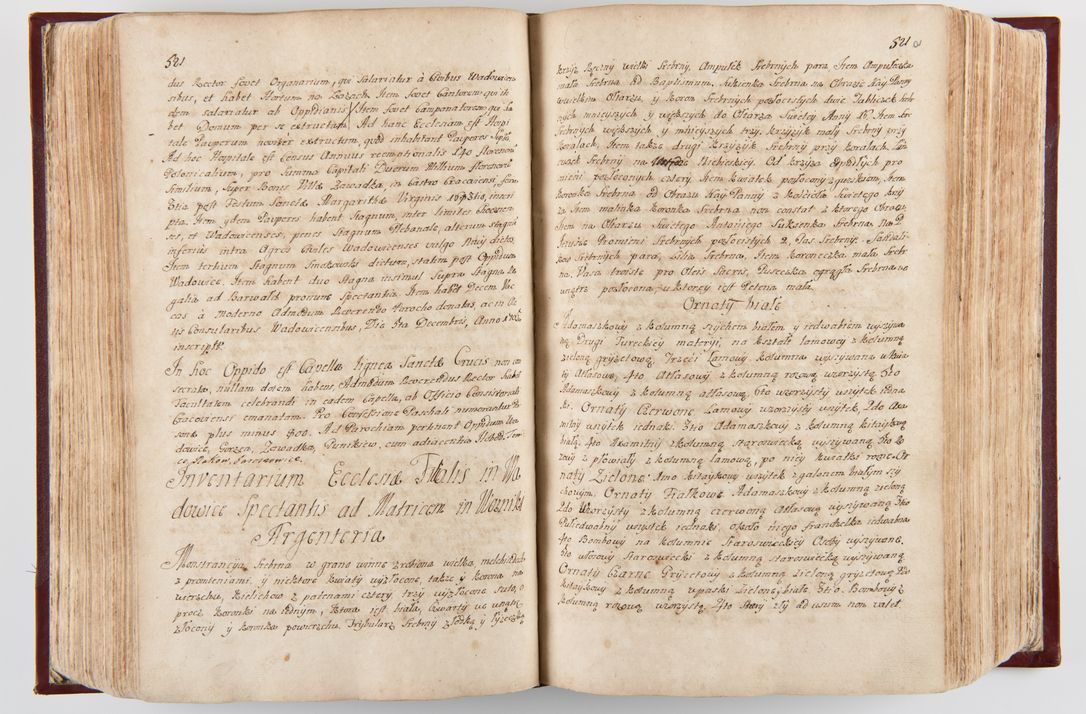 521
dus Rector fovet Organarium, qui Salariatur à Civibus Wadovicen
sibus, et habet Hortum na Łazach Item fovet Cantorem qui iti
dem salariatur ab Oppidanis Item fovet Campanatorem qui ha
bet Domum per se extructam. Ad hanc Ecclesiam est Hospi
tale Pauperum noviter extructum, quod inhabitant Pauperes Septem
Ad hoc Hospitale est Census Annuus reemptionalis 140 florenorum
Polonicalium, pro Summa Capitali Duorum Millium florenorum
Similium, Super Bonis Villæ Zawadka, in Castro Cracoviensi, feria
3tia post Festum Sanctæ Margarithæ Virginis inscri
pta. Item ijdem Pauperes habent Stagnum, inter limites Chocznen
ses, et Wadovicenses, penes Stagnum Plebanale, alterum stagnum
inferius intra Agros Civiles Wadovicenses vulgo Niwy dictos,
Item tertium Stagnum Smokowski dictum, statim post Oppidum
Wadowice. Item habent duo Stagna insimul Supra Stagna Re
galia ad Barwald pronunc Spectantia. Item habet Decem Vac
cas à Moderno Admodum Reverendo Parocho donatas, ac in A
ctis Consularibus Wadovicensibus, Die 5ta Decembris, Anno
inscriptæ.
In hoc Oppido est Capella lignea Sanctæ Crucis non con
secrata, nullam dotem habens, Admodum Reverendus Rector habet
Facultatem celebrandi in eadem Capella, ab Officio Consistoriali
Cracoviensi emanatam. Pro Confessione Paschali numerantur Per
sonæ plus minus 900. Ad Parochiam pertinent Oppidum Wa
dowice, Gorzen, Zawadka, Ponikiew, cum adiacentia
Inventarium Ecclesiæ Filialis in Wa
dowice Spectantis ad Matricem in Wozniki
Argenteria
Monstrancyia Srebrna w grona winne zrobiona wielka, melchizedech
z promieniami, y niektore kwiaty wyzłocone, także y korona na
wierzchu. Kielichow z patenami cztery trzy wyzłocone suto, o
procz koronki na iednym, ktora iest biała, Czwarty we wnątrz
złocony y koronka powierzchu. Trybularz Srebrny z łodką y łyżeczką
521 a
krzyż Ręczny wielki Srebrny, Ampułek Srebrnych para Item Ampułeczka
mała Srebrna Ad Baptismum. Sukienka Srebrna na Obrazie Nay Panny
w wielkim Ołtarzu, y koron Srebrnych pozłocistych dwie Tabliczek Srebr
nych mnieyszych, y większych do Ołtarza Swietey Anny 16 Item Ser
Srebrnych większych, y mnieyszych trzy, krzyżyk mały Srebrny przy
koralach, Item także drugi krzyżyk Srebrny przy koralach. Łań
cuch Srebrny na Niebieskiey. Od krzyża pro
mieni pozłoconych cztery Item kwiatek pozłocony z guzikiem, Item
koronka Srebrna Ad Obrazu Nay Panny z Kościoła Swietego krzy
ża Item malinka koronka Srebrna non constat z ktorego Obrazu,
Item na Ołtarzu Swietego Antoniego Suksenka Srebrna Na P.
Jezusie Promieni Srebrnych pozłocistych 2, Pas Srebrny, Sandali
kow Srebrnych para, Lilia Srebrna, Item koroneczka mała Srebr
na. Vasa troiste pro Oleis Sacris, Puszeczka okrągła Srebrna we
wnątrz pozłocona, w ktorey iest Patena mała.
Ornaty białe
Adamaszkowy z kolumną szychem białem y iedwabiem wyszywa
ną Drugi Tureckiey materyi, na kształt lamowey z kolumną
zieloną gryzetową. Trzeci Lamowy kolumna wyszywana w kwia
ty Atłasowa. 4to Atłasowy z kolumną rozową wzorzystą 5to
Adamaszkowy z kolumną atłasową. 6to wzorzysty wszytek iedna
ki. Ornaty Czerwone Lamowy wzorzysty wszytek, 2do Axa
mitny wszytek iednaki. 3tio Adamaszkowy z kolumną kitaykową
białą, 4to Axamitny z kolumną staroswiecką wyszywaną 5to Ko
zowy z płowiały z kolumną lamową, po niey kwiatki rożne. Or
naty Zielone. 1mo kitaykowy wszytek z galonem białym szy
chowym. Ornaty Fiałkowe. Adamaszkowy z kolumną zieloną
2do Wzorzysty z kolumną czerwoną Atłasową wyszywaną 3tio
Pułiedwabny wszytek iednaki, około niego frandzelka iedwabna
4to Bombowy na kolumnie Staroswieckiey Osoby wyszywane,
5to włosowy staroswiecki z kolumną staroswiecką wyszywaną
Ornaty Czarne Gryzetowy z kolumną zieloną gryzetową 2do
kitaykowy z kolumną w paski Zielone, białe. 3tio Bombowy z
kolumną rozową wzorzystą 4to Stary zły ad usum non valet.